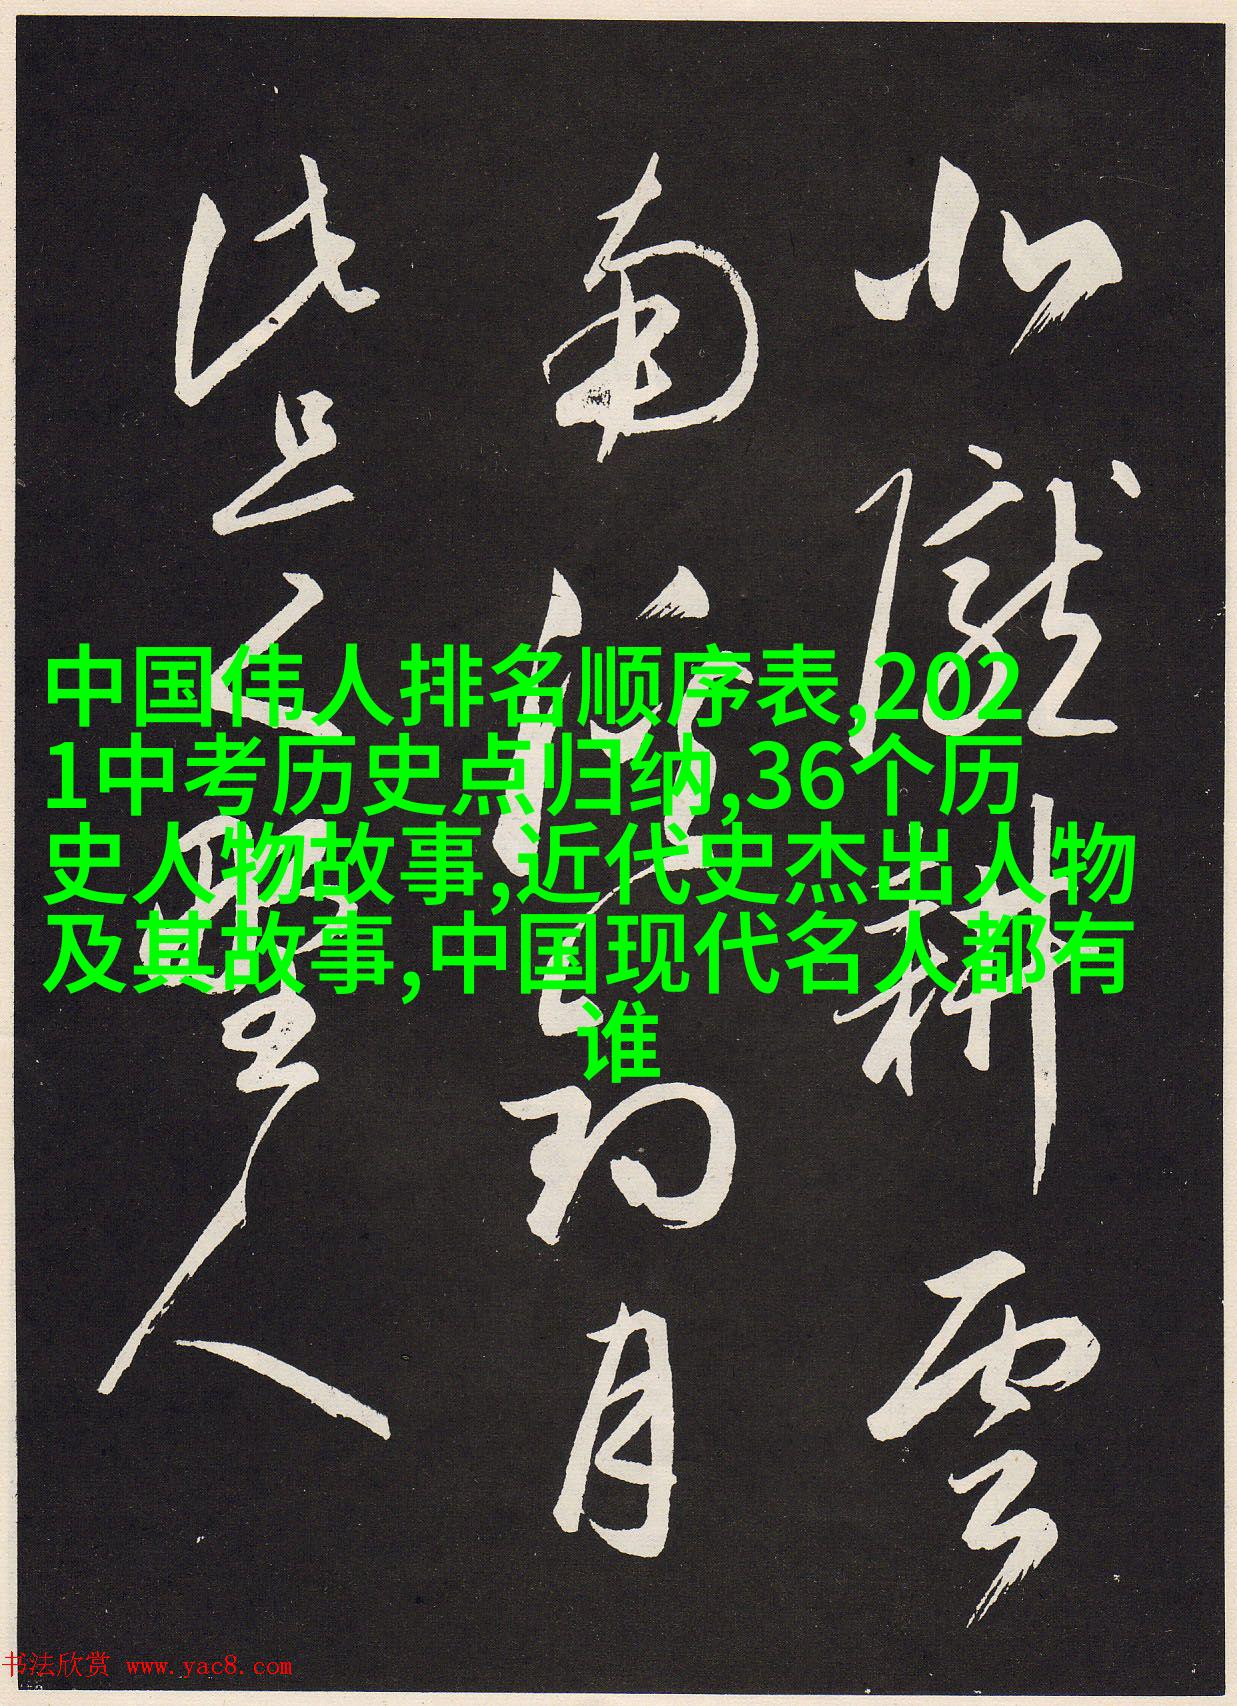 中国伟人排名顺序表,202
1中考历史点归纳,36个历
史人物故事,近代史杰出人物
及其故事,中国现代名人都有
谁
北隴耕雲
南溪釣月
此是野人
书法欣赏 www.yac8.com